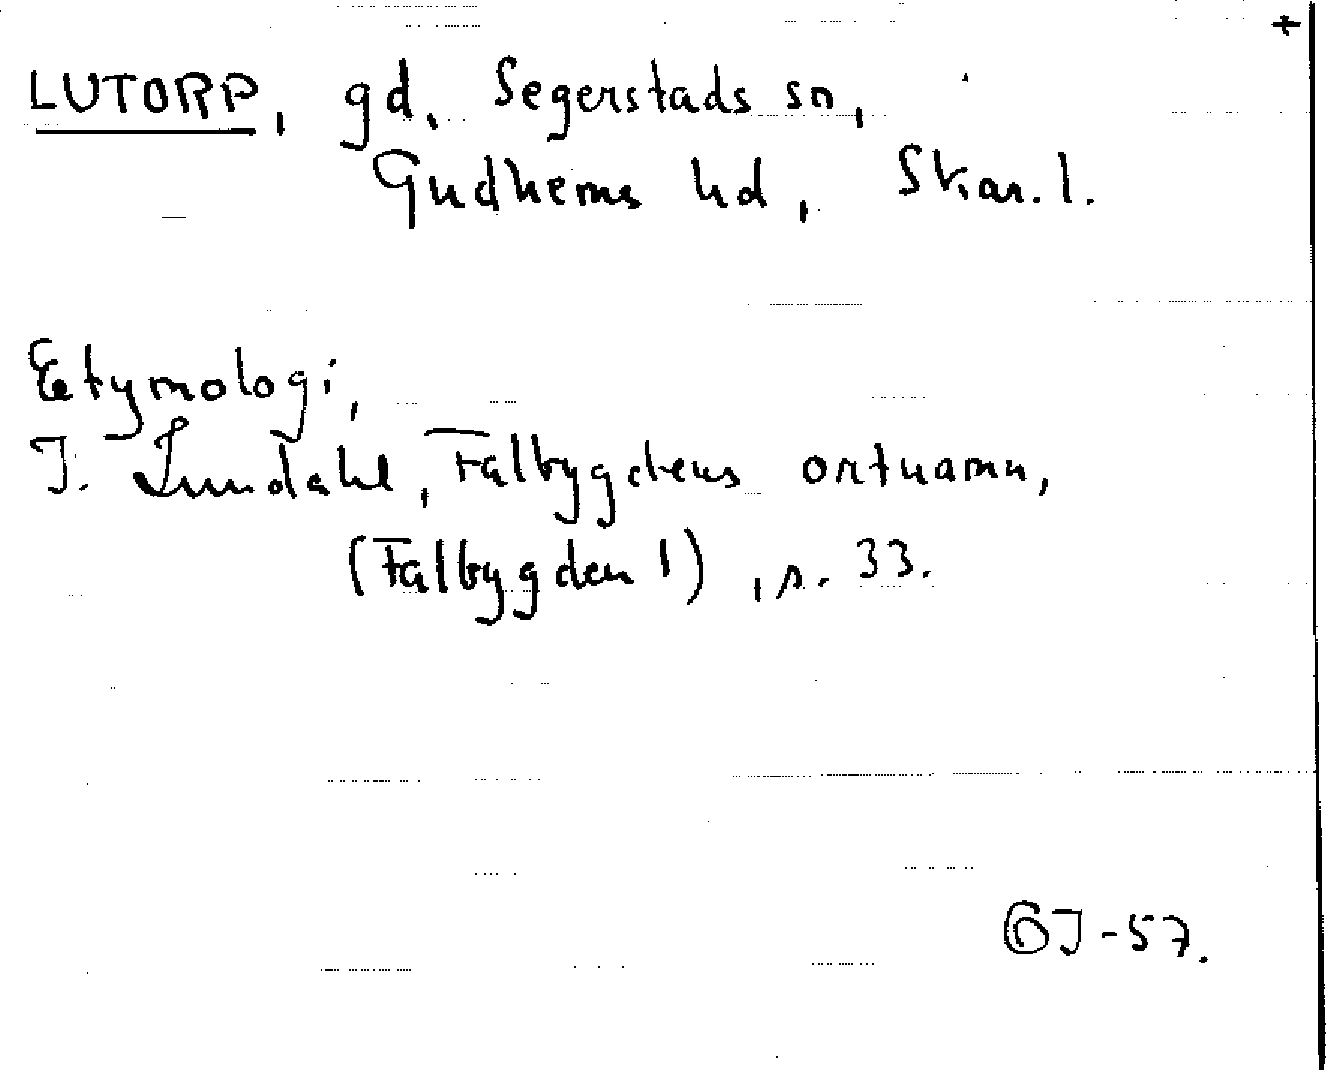 +
LUTORP, gd, Segerstads sn,
Gudhems hd, Skar. l.
Etymologi,
I. Lundahl, Falbygdens ortnamn,
(Falbygden 1), s. 33.
GJ-57.